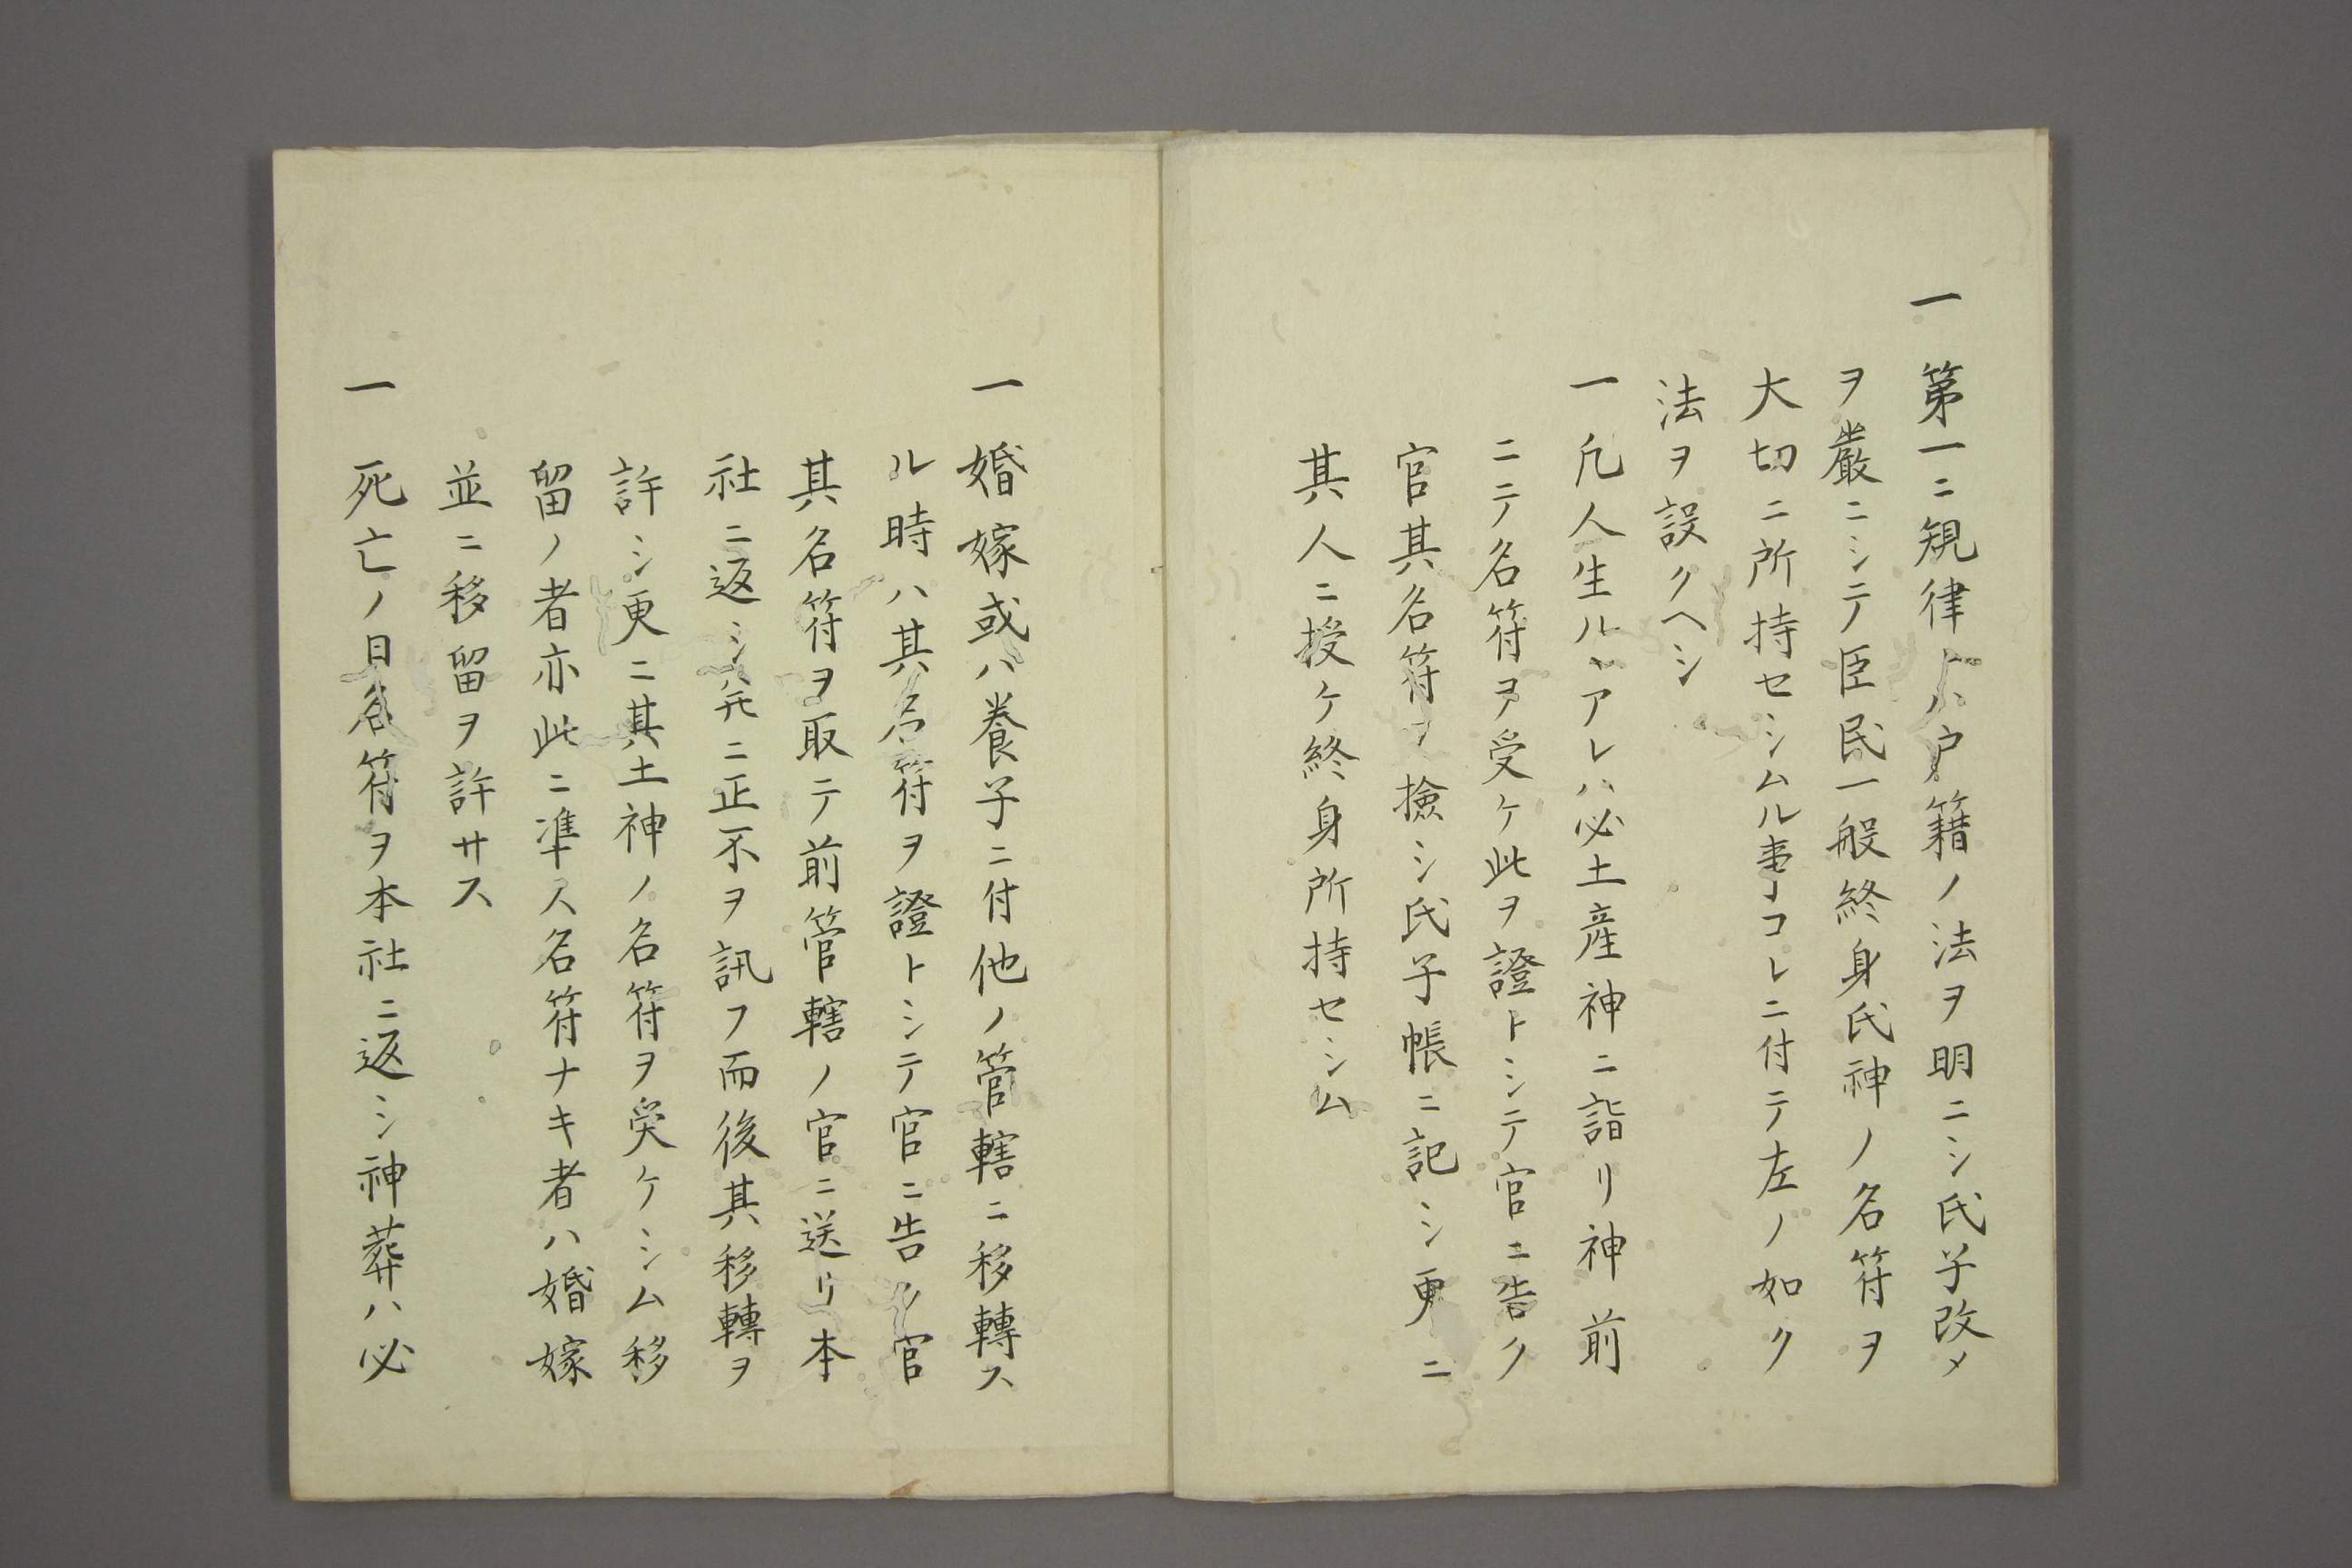 一第一ニ規律トハ戸籍ノ法ヲ明ニシ氏子改メ
ヲ嚴ニシテ臣民一般終身氏神ノ名符ヲ
大切ニ所持セシムル事コレニ付テ左ノ如ク
法ヲ設クヘシ
一凡人生ルヽアレハ必土産神ニ詣リ神前
ニテ名符ヲ受ケ此ヲ證トシテ官ニ告ク
官其名符ヲ撿シ氏子帳ニ記シ更ニ
其人ニ授ケ終身所持セシム
一婚嫁或ハ養子ニ付他ノ管轄ニ移轉ス
ル時ハ其名符ヲ證トシテ官ニ告ク官
其名符ヲ取テ前管轄ノ官ニ送リ本
社ニ返シ先ニ正不ヲ訊フ而後其移轉ヲ
許シ更ニ其土神ノ名符ヲ受ケシム移
留ノ者亦此ニ準ス名符ナキ者ハ婚嫁
並ニ移留ヲ許サス
一死亡ノ日名符ヲ本社ニ返シ神葬ハ必